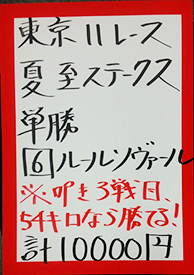 東京11レース
夏至ステークス
単勝
6ルールソヴァール
※叩き3戦目、
54キロなら勝てる!
計10000円